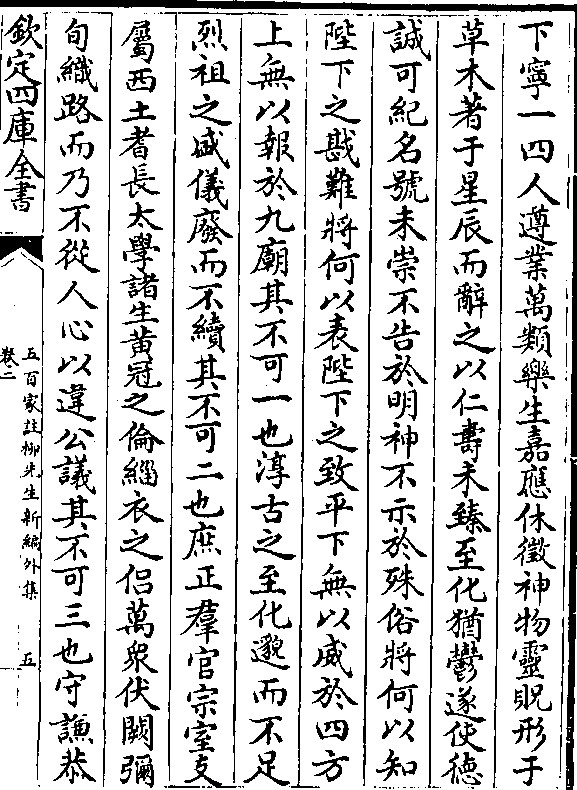 下寧一四人遵業萬類樂生嘉應休徵神物靈貺形于
草木著于星辰而辭之以仁壽未臻至化猶鬱遂使德
誠可紀名號未崇不告於明神不示於殊俗將何以知
陛下之戡難將何以表陛下之致平下無以威於四方
上無以報於九廟其不可一也淳古之至化邈而不足
烈祖之盛儀廢而不續其不可二也庶正羣官宗室支
屬西土耆長太學諸生黄冠之倫緇衣之侣萬衆伏闕彌
旬織路而乃不從人心以違公議其不可三也守謙恭
欽定四庫全書
五百家註柳先生新編外集
卷二
五